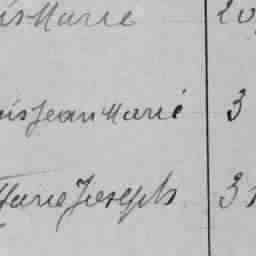 is Marie 20
ois Jean Marie 3
Marie Joseph 3